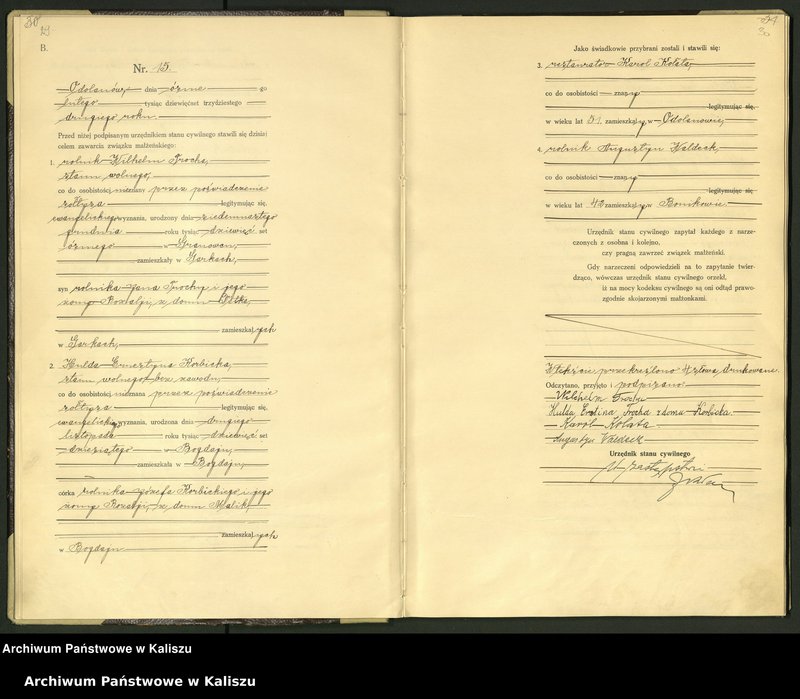 30
B.
Nr. 15
Odolanów, dnia ósma go
lutego tysiąc dziewięćset trzydziestego
drugiego roku
Przed niżej podpisanym urzędnikiem stanu cywilnego stawili się dzisiaj
celem zawarcia związku małżeńskiego:
1. rolnik Wilhelm Trocha,
stanu wolnego,
co do osobistości nieznany przez poświadczenie
sołtysa legitymując się,
ewangelickiego wyznania, urodzony dnia siedemnastego
grudnia roku tysiąc dziewięć set
ósmego w Granowcu,
zamieszkały w Garkach,
syn rolnika Jana Trochy i jego
żony Rozalji, z domu
zamieszkałych
w Garkach,
2. Hulda Ernestyna Korbicka,
stanu wolnego, bez zawodu,
co do osobistości nieznana przez poświadczenie
sołtysa legitymując się,
ewangelickiego wyznania, urodzona dnia drugiego
listopada roku tysiąc dziewięć set
dziesiątego w Bogdaju,
zamieszkała w Bogdaju,
córka rolnika Józefa Korbickiego i jego
żony Rozalji, z domu Malik,
zamieszkałych
w Bogdaju
30
Jako świadkowie przybrani zostali i stawili się:
3. restaurator Karol Kolata,
co do osobistości znany
legitymując się,
w wieku lat 51 zamieszkały w Odolanowie,
4. rolnik Augustyn Waldeck,
co do osobistości znany
legitymując się
w wieku lat 42 zamieszkały w Bonikowie.
Urzędnik stanu cywilnego zapytał każdego z narze-
czonych z osobna i kolejno,
czy pragną zawrzeć związek małżeński.
Gdy narzeczeni odpowiedzieli na to zapytanie twier-
dząco, wówczas urzędnik stanu cywilnego orzekł,
iż na mocy kodeksu cywilnego są oni odtąd prawo-
zgodnie skojarzonymi małżonkami.
W tekście przekreślono 4 słowa drukowane.
Odczytano, przyjęto i podpisano
Wilhelm Trocha
Hulda Trocha z domu Korbicka.
Karol Kolata
Waldeck
Urzędnik stanu cywilnego
W zastępstwie
Archiwum Państwowe w Kaliszu
Archiwum Państwowe w Kaliszu